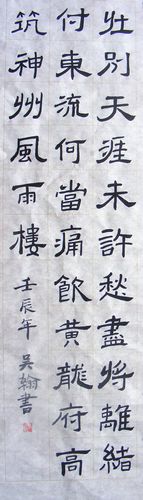 壯別天涯未許愁盡將離緒
付東流何當痛飲黄龍府高
筑神州風雨樓
壬辰年 吴翰書